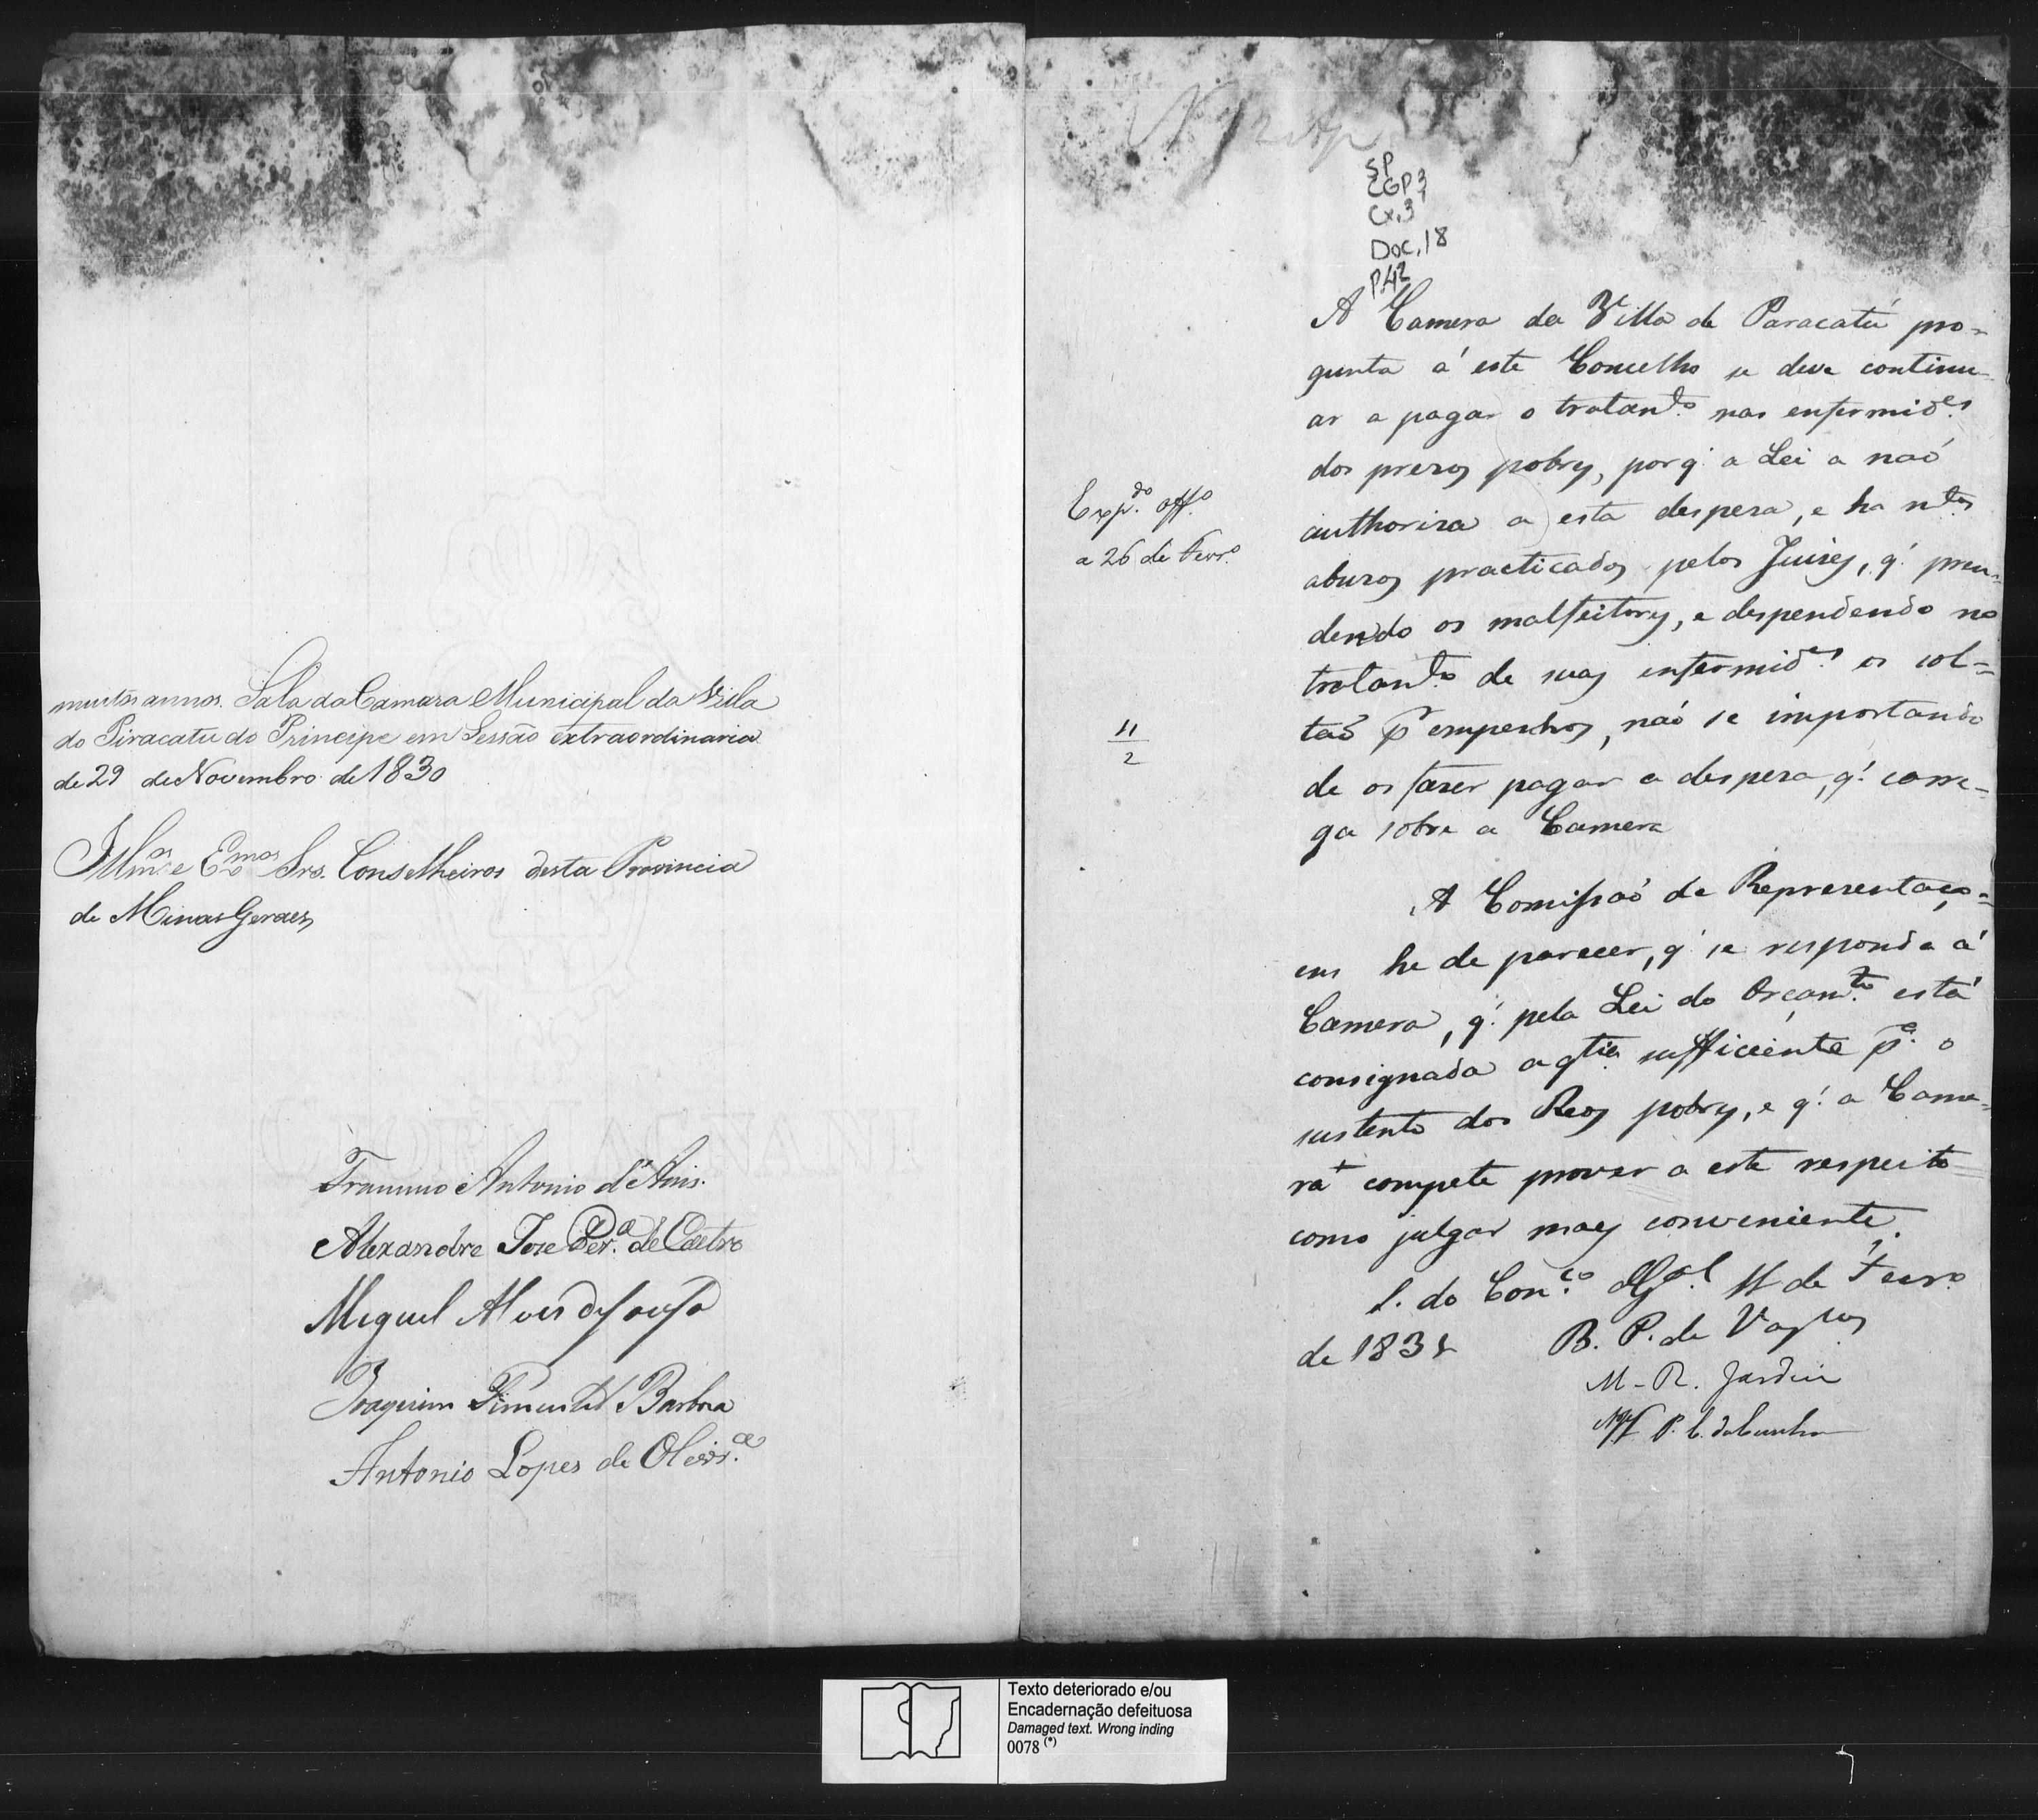 muitos annos. Sala da Camara Municipal da Villa
do Piracatu do Principe em Sessão extraordinaria
de 29 de Novembro de 1830
Illmos e Exmos Srs. Conselheiros desta Provincia
de Minas Geraes
Antonio d'Assis.
Alexandre Jose Per.ª de Castro
Miguel Alves de Souza
Joaquim Pimentel Barbosa
Antonio Lopes de Olivr.ª
SP
CGP3
Cx.3
Doc.18
P.42
A Camera da Villa de Paracatú pro=
gunta á este Concelho se deve continu=
ar a pagar o tratam.to nas enfermid.es
dos prezos pobres, porq' a Lei a naõ
authoriza a esta despeza, e ha m.tos
abuzos practicados pelos Juizes, q' pren=
dendo os malfeitores, e despendendo no
tratam.to de suas enfermid.es os sol=
taõ p.r empenhos, naõ se importando
de os fazer pagar a despeza, q' carre=
ga sobre a Camera
Exp.do off.o
a 26 de Fevr.o
11
2
A Comissaõ de Representaço=
ens he de parecer, q' se responda á
Camera, q' pela Lei do Orçam.to está
consignada a q.tia sufficiente p.a o
sustento dos Reos pobres, e q' a Came=
ra compete prover a este respeito
como julgar mais conveniente.
S. do Con.co G.al 11 de Fevr.o
de 1831
B. P. de Vas.los
M. R. Jardim
P. C. da Cunha
Texto deteriorado e/ou
Encadernação defeituosa
Damaged text. Wrong inding
0078 (*)